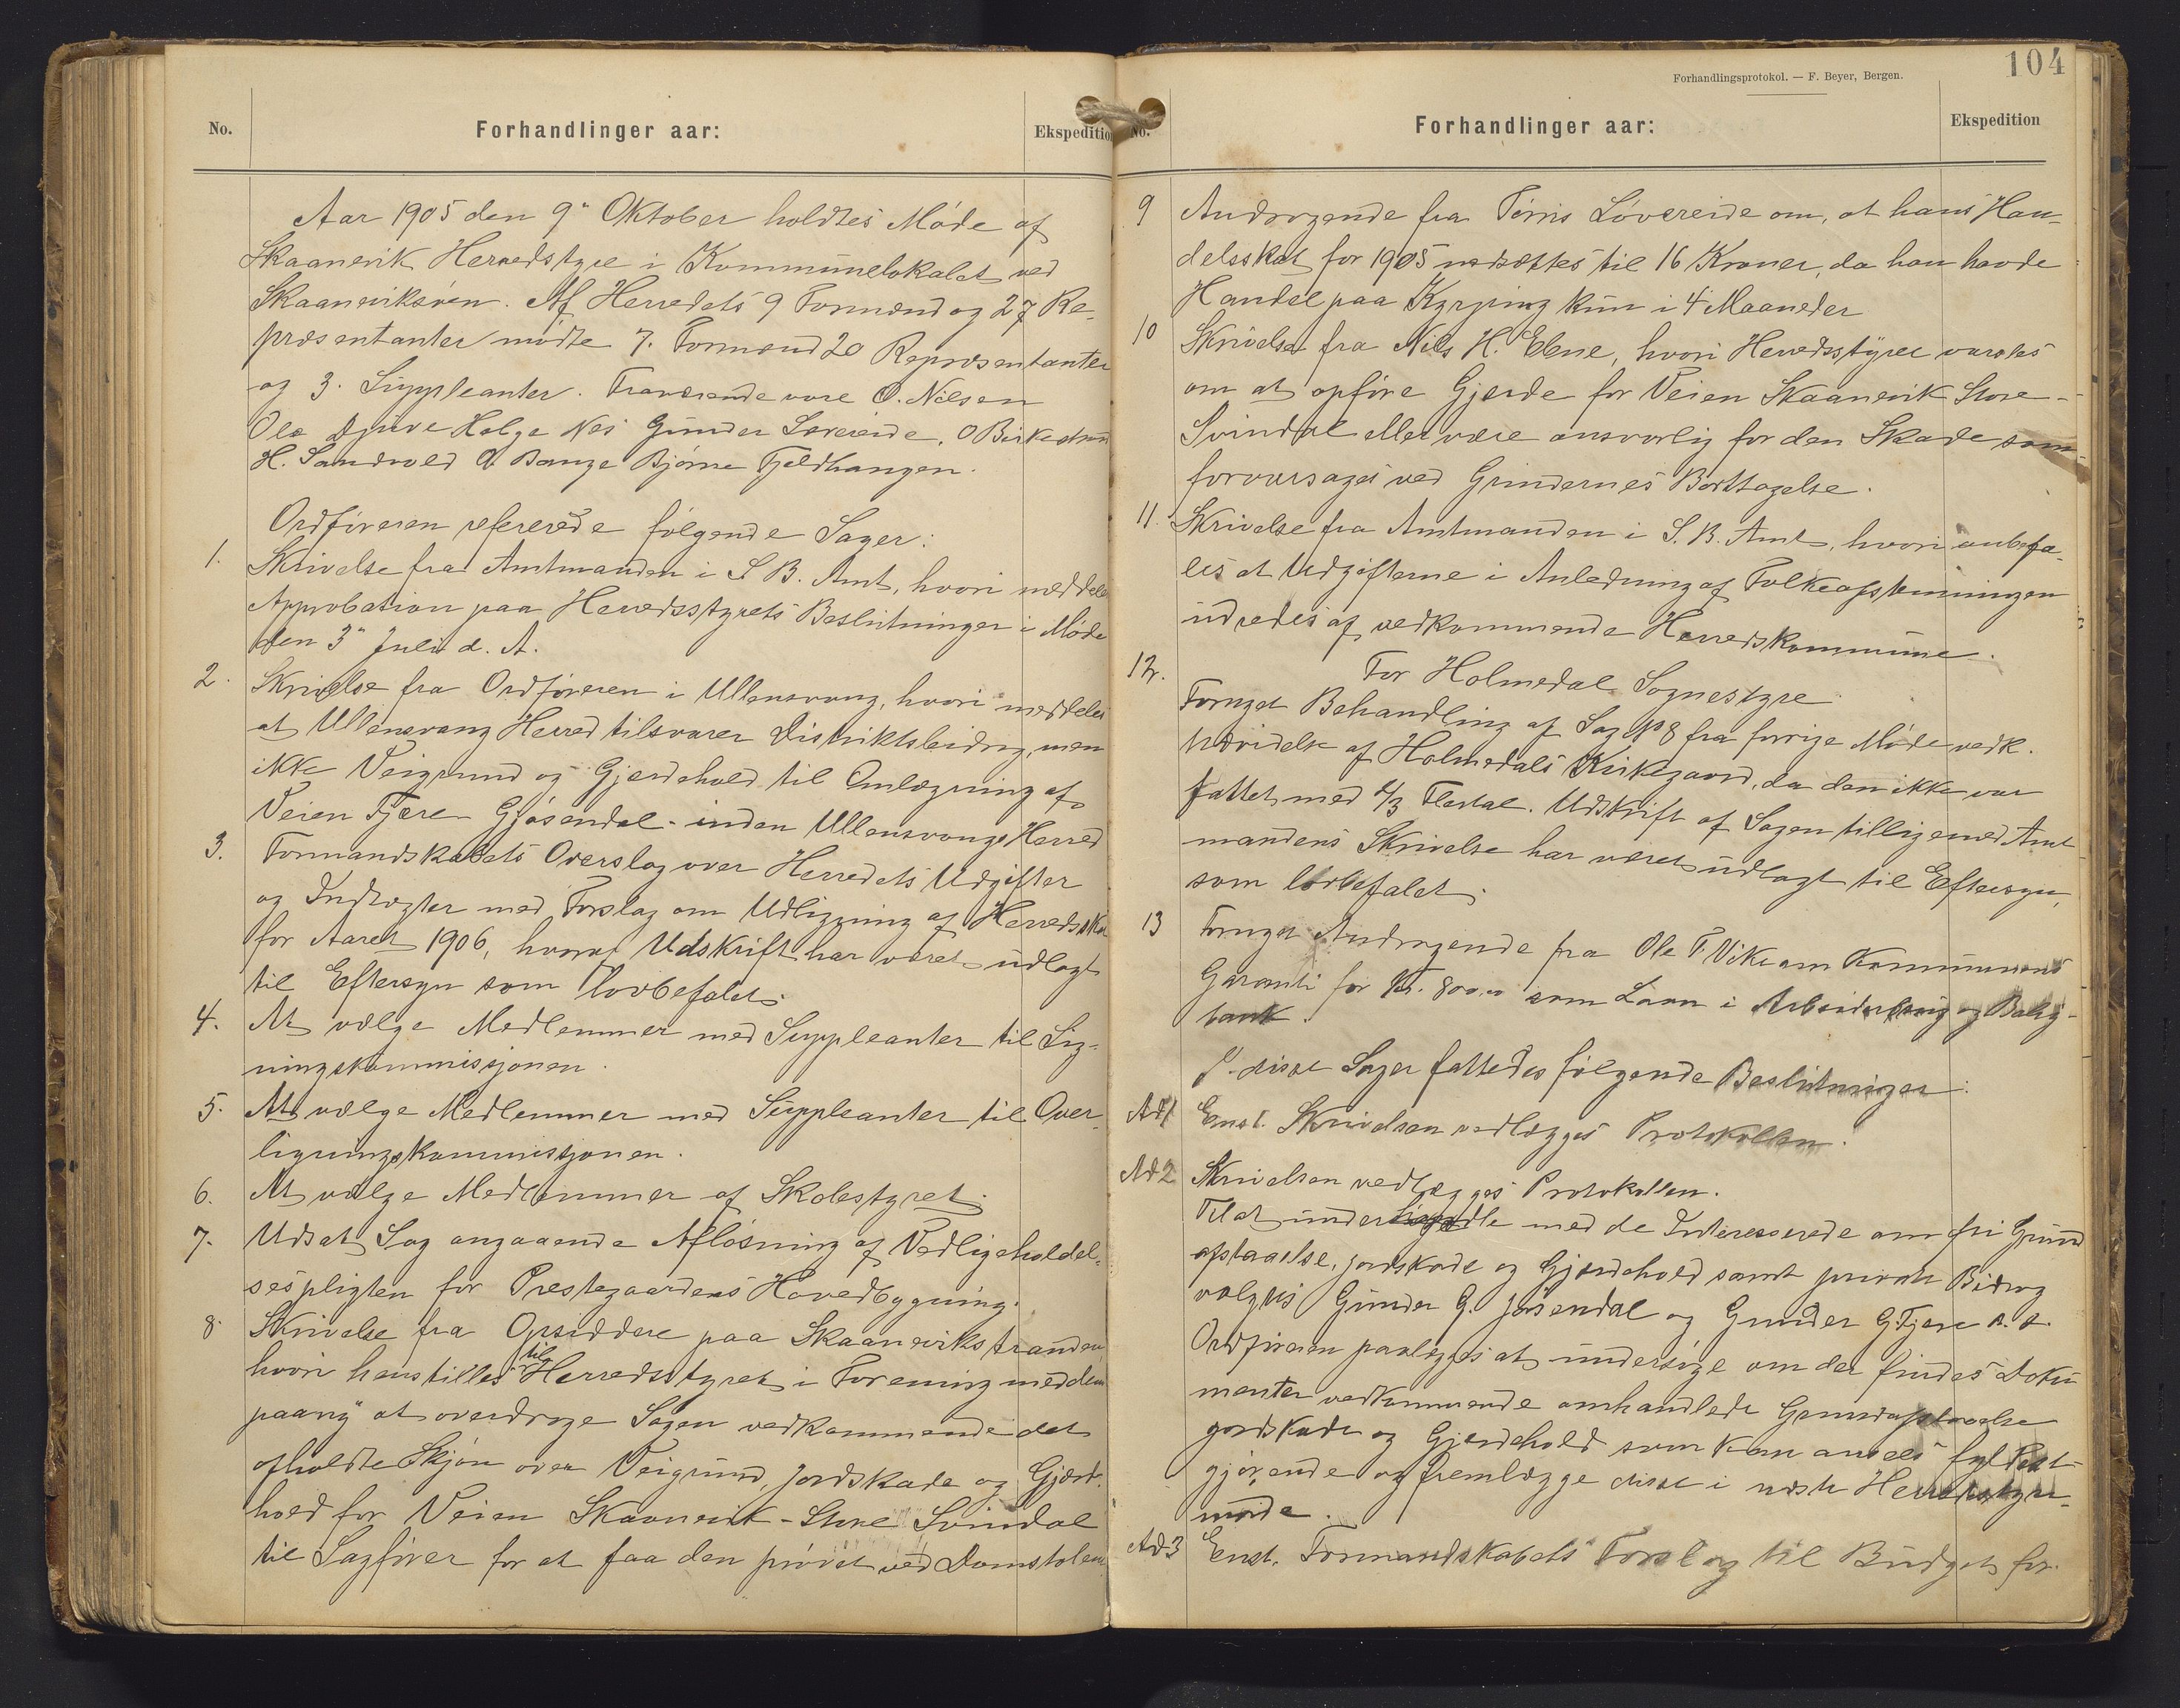 No.
Forhandlinger aar:
Ekspedition
Aar 1905 den 9" Oktober holdtes Møde af
Skaanevik Herredstyre i Kommunelokalet ved
Skaaneviksøen. Af Herredets 9 Formænd og 27 Re-
præsentanter mødte 7. Formænd 20 Repræsentanter
og 3. Suppleanter. Fraværende vare O. Nilsen
Ole Djuve Helge Nes Gunder Løvereide, O Birkeland
H. Sandvold O. Bauge Bjørne Fjeldhaugen.
Ordføreren refererede følgende Sager:
1. Skrivelse fra Amtmanden i S B. Amt, hvori meddeles
Approbation paa Herredsstyrets Beslutninger i Møde
den 3" Juli d. A.
2. Skrivelse fra Ordføreren i Ullensvang, hvori meddeles
at Ullensvang Herred tilsvarer Distriktsbidrag, men
ikke Veigrund og Gjærdehold til Omlægning af
Veien Fjære Gjøsendal inden Ullensvangs Herred
3. Formandskabets Overslag over Herredets Udgifter
og Indtægter med Forslag om Udligning af Herredsskat
for Aaret 1906, hvoraf Udskrift har været udlagt
til Eftersyn som lovbefalet.
4. At vælge Medlemmer med Suppleanter til Lig-
ningskommissjonen.
5. At vælge Medlemmer med Suppleanter til Over-
ligningskommissjonen.
6. At vælge Medlemmer af Skolestyret.
7. Udsat Sag angaaende Afløsning af Vedligeholdel-
sespligten for Prestegaardens Hovedbygning.
8. Skrivelse fra Opsiddere paa Skaaneviksstranden,
hvori henstilles til Herredsstyret i Forening med dem
paany at overdrage Sagen vedkommende det
afholdte Skjøn over Veigrund, Jordskade og Gjærde-
hold for Veien Skaanevik - Store Svindal
til Sagfører for at faa den prøvet ved Domstolene
Forhandlingsprotokol. — F. Beyer, Bergen.
104
No.
Forhandlinger aar:
Ekspedition
9 Andragende fra Tørris Løvereide om, at hans Han-
delsskat for 1905 nedsættes til 16 Kroner, da han havde
Handel paa Kyrping kun i 4 Maaneder
10 Skrivelse fra Nils H. Ebne, hvori Herredsstyret varsles
om at opføre Gjerde for Veien Skaanevik Store-
Svindal eller være ansvarlig for den Skade som
forvarsages ved Grindernes Borttagelse.
11. Skrivelse fra Amtmanden i S. B. Amt, hvori anbefa-
les at Udgifterne i Anledning af Folkeafstemningen
udredes af vedkommende Herredskommune.
12. For Holmedal Sognestyre
Fornyet Behandling af Sag No 8 fra forrige Møde vedk.
Udvidelse af Holmedals Kirkegaard, da den ikke var
fattet med 2/3 Flertal. Udskrift af Sagen tilligemed Amt
mandens Skrivelse har været udlagt til Eftersyn,
som lovbefalet.
13 Fornyet Andragende fra Ole T. Vike om Kommunens
Garanti for Kr. 800,00 som Laan i Arbeiderbrug og Bolig-
bank.
I disse Sager fattedes følgende Beslutninger:
Ad 1 Enst. Skrivelsen vedlægges Protokollen.
Ad 2 Skrivelsen vedlægges Protokollen.
Til at underhandle med de Interesserede om fri Grund
afstaaelse, jordskade og Gjærdehold samt private Bidrag
vælges Gunder G. Jøsendal og Gunder G. Fjære s. d.
Ordføreren paalægges at undersøge om der findes Doku
menter vedkommende omhandlede Grundafstaaelse
jordskade og Gjærdehold som kan ansees fyldest-
gjørende og fremlægge disse i næste Herredsstyre-
møde.
Ad 3 Enst. Formandskabets Forslag til Budget for